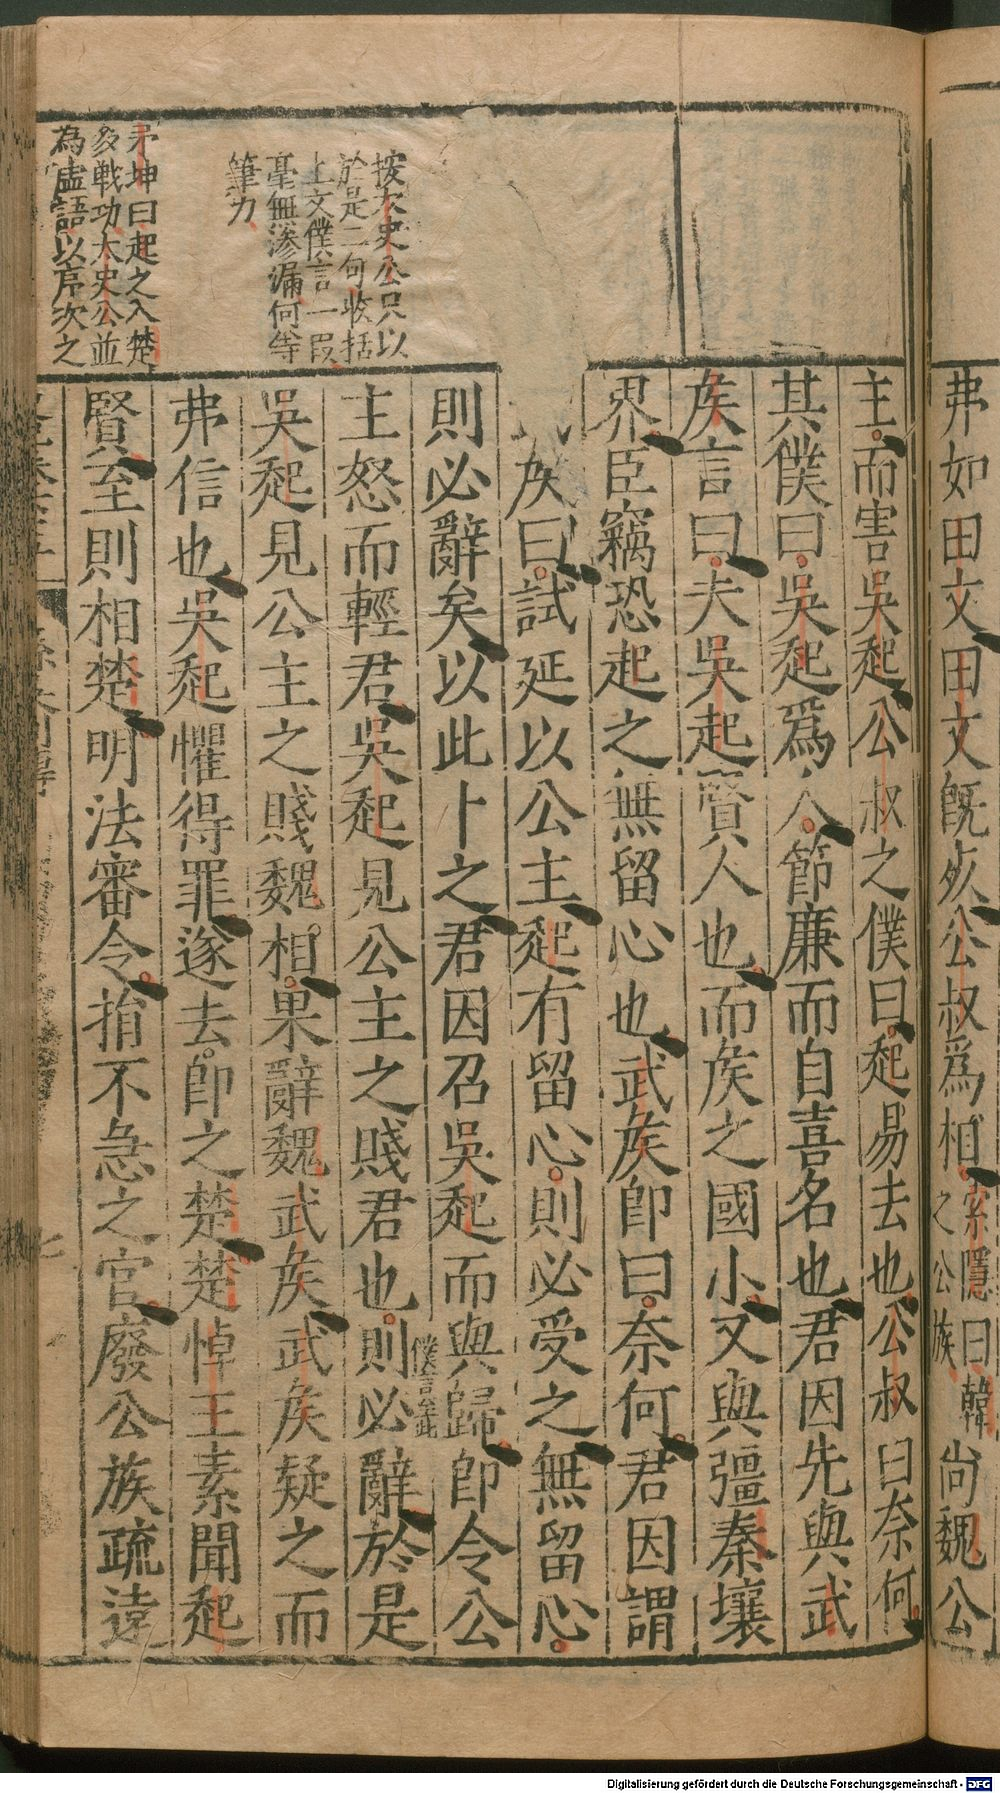 弗如田文田文既死公叔爲相索隱曰韓之公族尚魏公
主而害吳起公叔之僕曰起易去也公叔曰奈何
其僕曰吳起爲人節廉而自喜名也君因先與武
矦言曰夫吳起賢人也而矦之國小又與彊秦壤
界臣竊恐起之無留心也武矦卽曰奈何君因謂
武矦曰試延以公主起有留心則必受之無留心
則必辭矣以此卜之君因召吳起而與歸卽令公
主怒而輕君吳起見公主之賤君也則必辭僕言至此於是
吳起見公主之賤魏相果辭魏武矦武矦疑之而
弗信也吳起懼得罪遂去卽之楚楚悼王素聞起
賢至則相楚明法審令捐不急之官廢公族疏遠
按太史公只以
於是二句收括
上文僕言一段
毫無滲漏何等
筆力
茅坤曰起之入楚
多戰功太史公並
為虛語以序次之
七
Digitalisierung gefördert durch die Deutsche Forschungsgemeinschaft - DFG